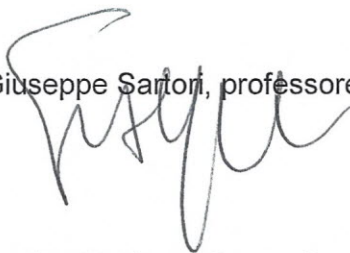 Giuseppe Sartori, professore